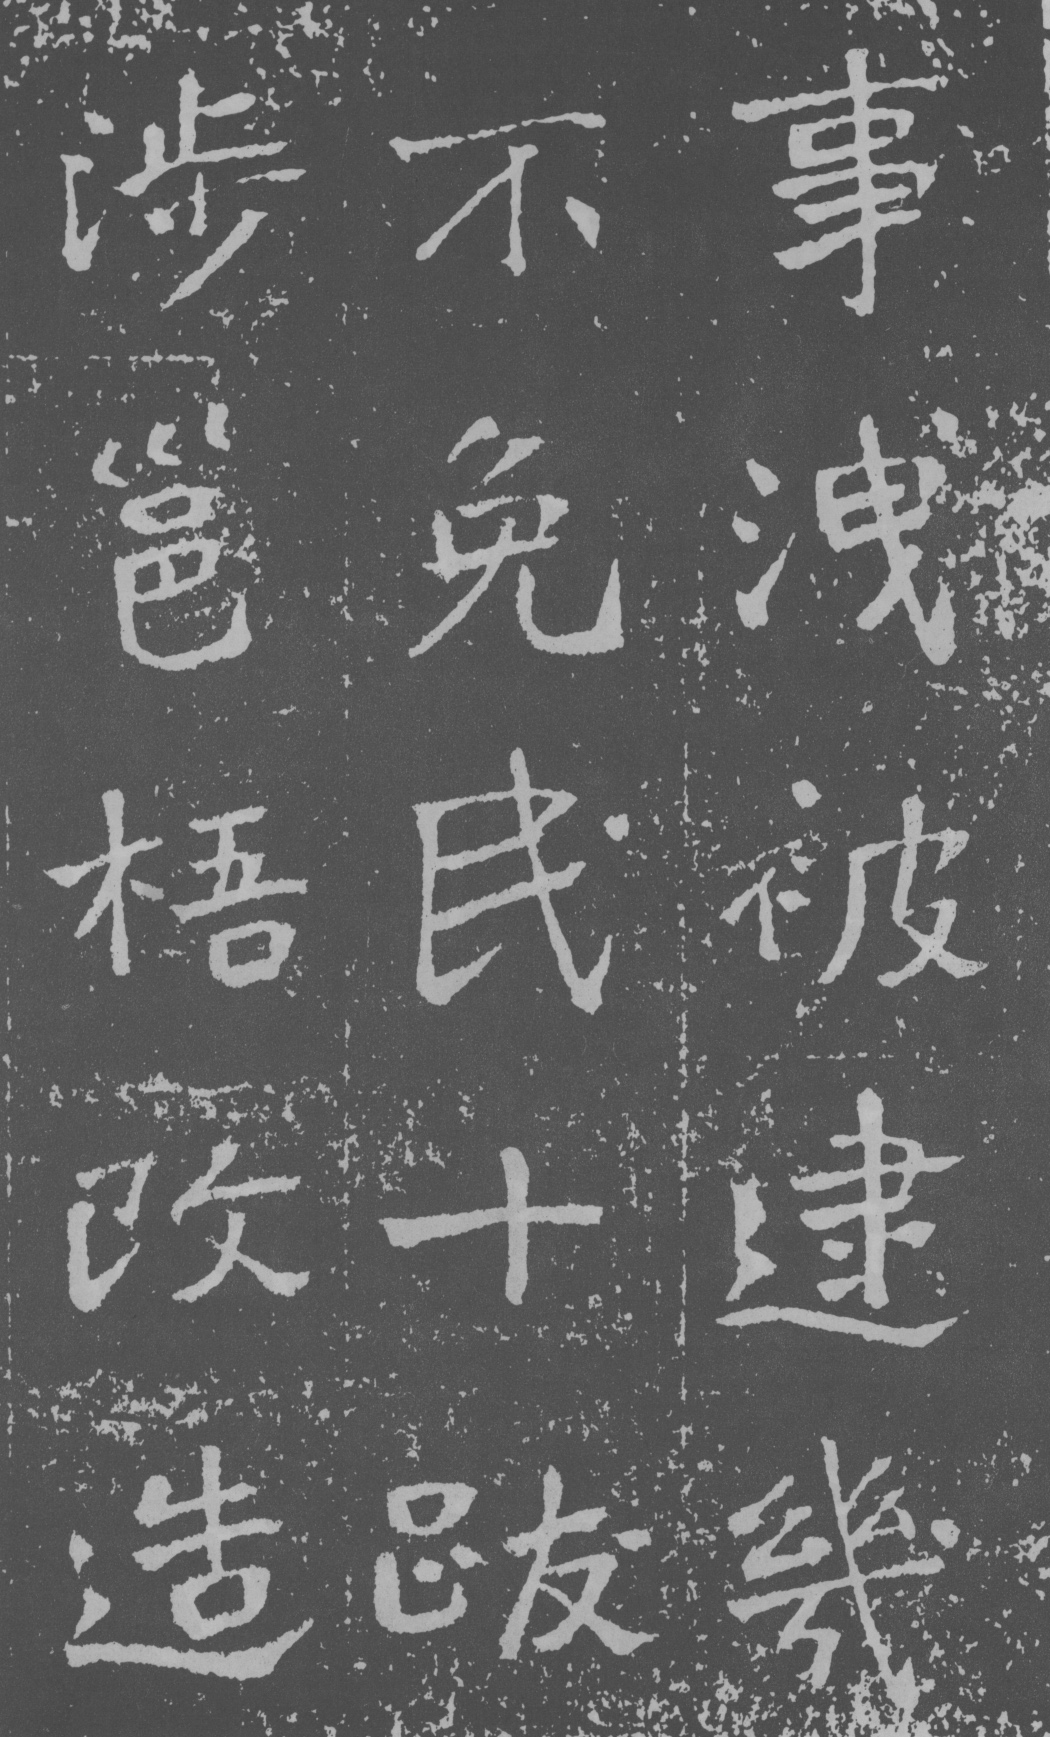 事洩被逮幾
不免民十跋
涉邕梧改造